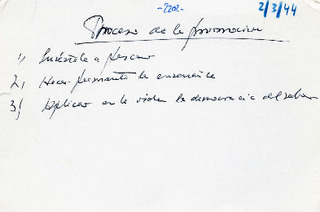 -2202-
2/3/44
Proceso de la promoción
1) Enséñale a pescar
2) Hacer permanente la enseñanza
3) Aplicar en la vida la democracia del saber